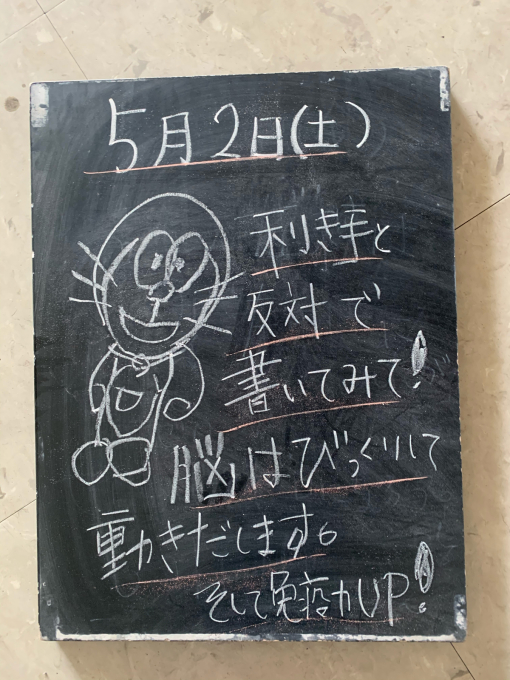 5月2日(土)
利き手と
反対で
書いてみて!
脳はびっくりして
動きだします。
そして免疫力UP!